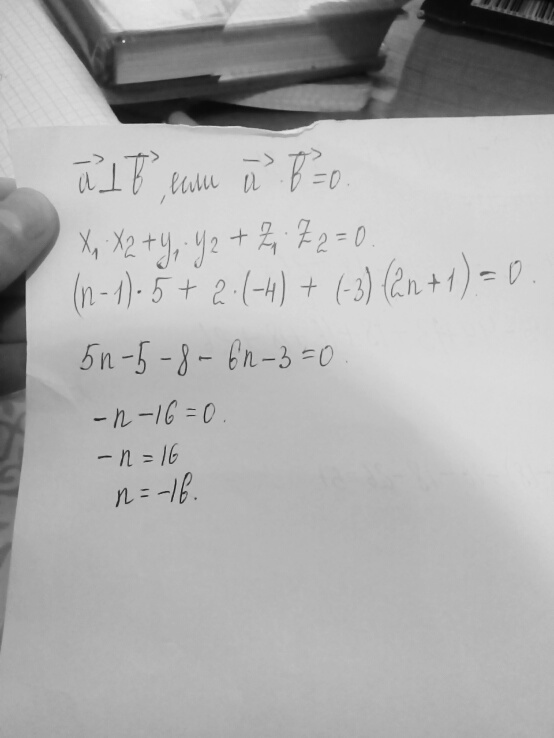 a⃗ ⊥ b⃗, если a⃗ · b⃗ = 0.
x₁ · x₂ + y₁ · y₂ + z₁ · z₂ = 0.
(n-1) · 5 + 2 · (-4) + (-3) (2n+1) = 0.
5n - 5 - 8 - 6n - 3 = 0.
-n - 16 = 0.
-n = 16
n = -16.